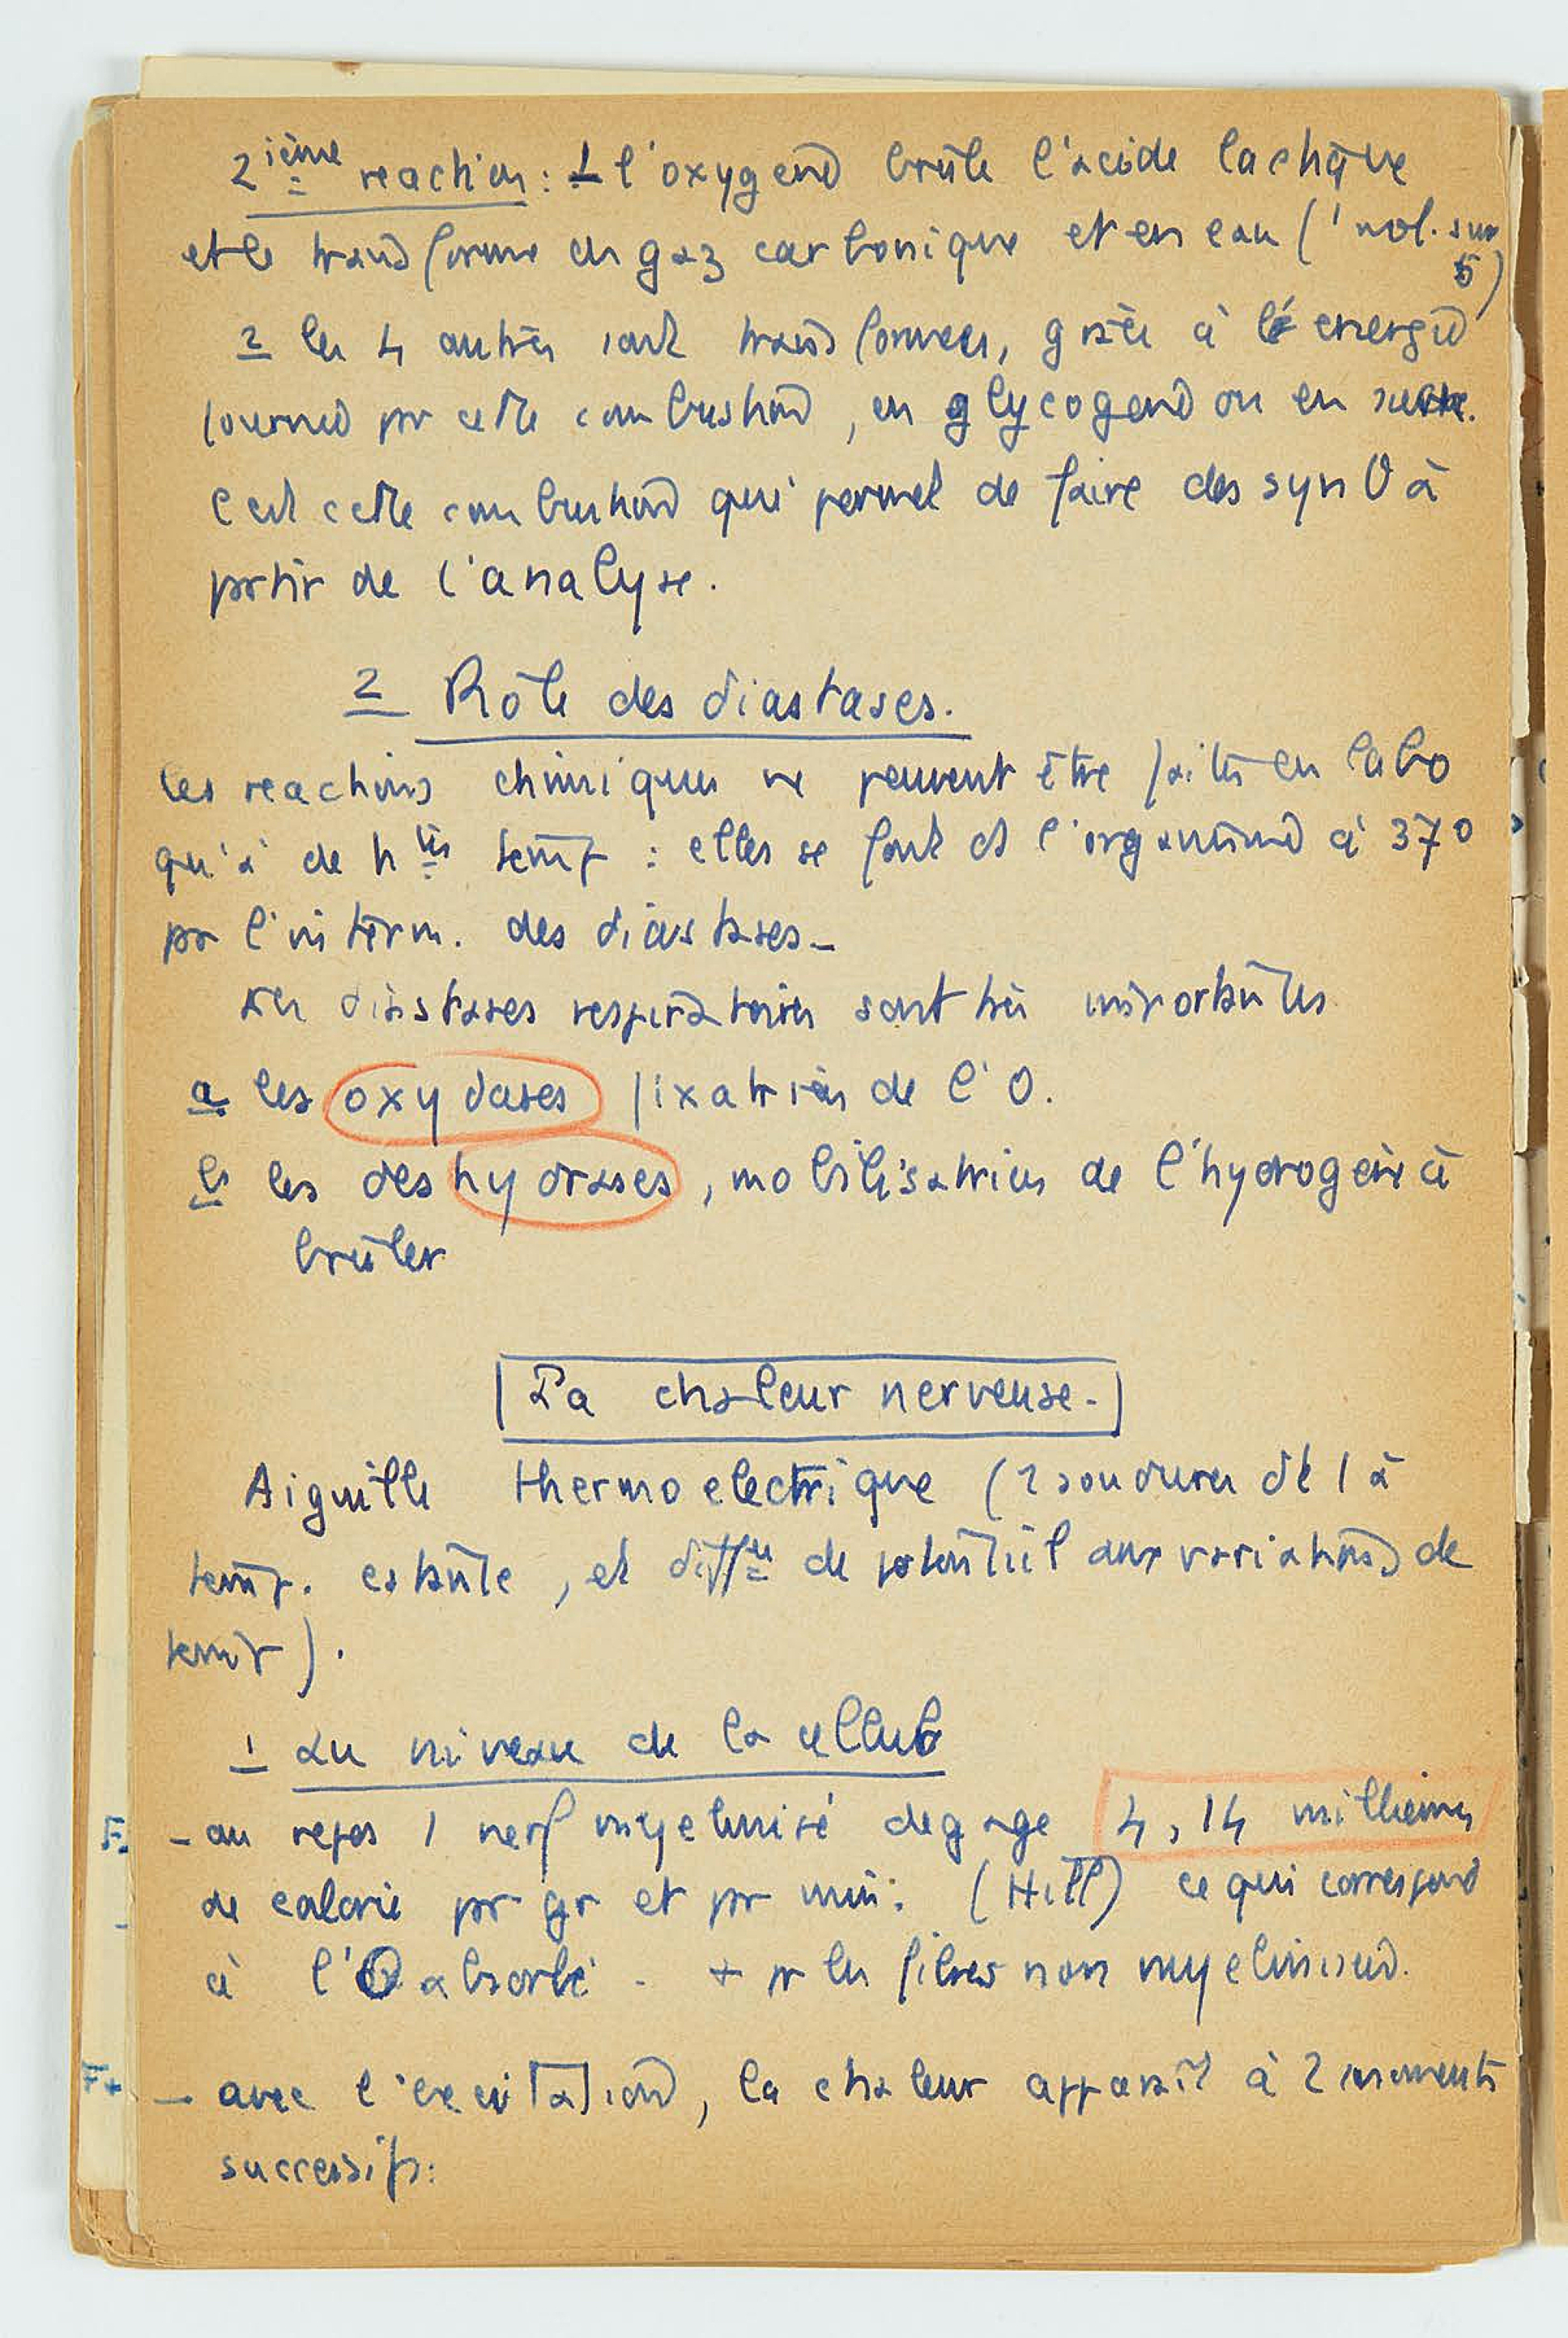 2ième reaction : 1 l'oxygene brûle l'acide lactique
et le transforme en gaz carbonique et en eau (1 mol. sur
5)
2 les 4 autres sont transformees, grâce à l'énergie
fournie pr cette combustion, en glycogene ou en sucre.
C'est cette combustion qui permet de faire des synθ à
partir de l'analyse.
2 Rôle des diastases.
les reactions chimiques ne peuvent être faites en labo
qu'à de htes temp : elles se font ds l'organisme à 37°
pr l'interm. des diastases -
Les diastases respiratoires sont très importantes
a les oxydases fixatrices de l'O.
b les deshydrases, mobilisatrices de l'hydrogène à
brûler
La chaleur nerveuse.
Aiguille thermoelectrique (2 soudures dt 1 à
temp. cstante, et diffce de potentiel aux variations de
temp).
1 Au niveau de la cellule
- au repos 1 nerf myelinisé degage 4,14 milliemes
de calorie pr gr et pr min. (Hill) ce qui correspond
à l'O absorbé - + pr les fibres non myelinisées.
- avec l'excitation, la chaleur apparaît à 2 moments
successifs :
F.
F+